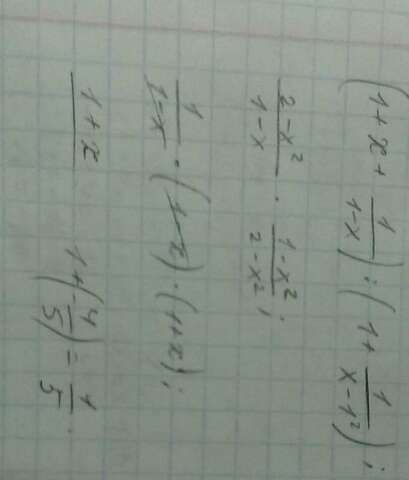 (1+x+1/(1-x)):(1+1/(x-1²));
(2-x²)/(1-x) · (1-x²)/(2-x²);
1/(1-x) · (1-x) · (1+x);
1+x 1+(-4/5)=1/5.